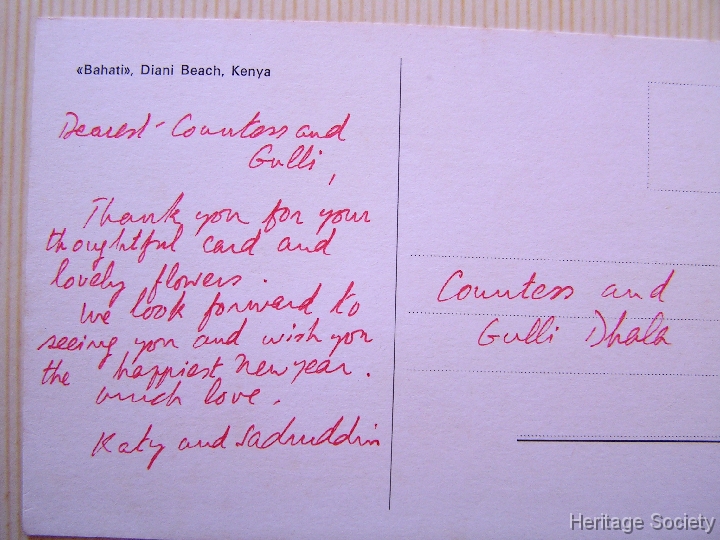 «Bahati», Diani Beach, Kenya
Dearest Countess and
Gulli,
Thank you for your
thoughtful card and
lovely flowers.
We look forward to
seeing you and wish you
the happiest New year.
much love.
Katy and Sadruddin
Countess and
Gulli Dhala
Heritage Society